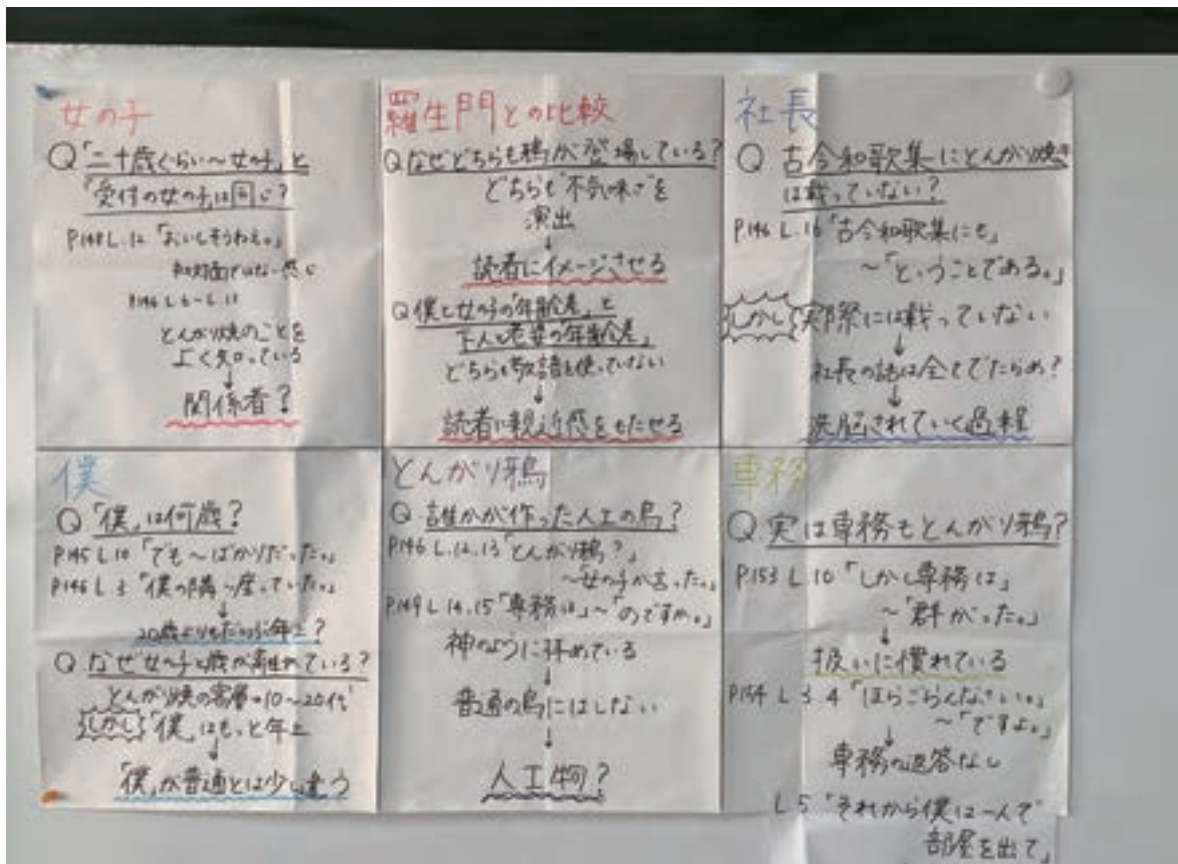 女の子
Q「二十歳ぐらい〜女の子」と
「受付の女の子」は同じ?
P148 L.12 「おいしそうねえ。」
初対面ではない感じ
P146 L6〜L.11
とんがり焼のことを
よく知っている
↓
関係者?
羅生門との比較
Qなぜどちらも鴉が登場している?
どちらも"不気味さ"を
演出
↓
読者にイメージさせる
Q僕と女の子の「年齢差」と
下人と老婆の年齢差」
どちらも敬語を使っていない
↓
読者に親近感をもたせる
社長
Q 古今和歌集にとんがり焼き
は載っていない?
P146 L.16「古今和歌集にも」
〜「ということである。」
しかし 実際には載っていない
↓
社長の話は全てでたらめ?
↓
洗脳されていく過程
僕
Q「僕」は何歳?
P145 L10「でも〜ばかりだった。」
P146 L 3 「僕の隣〜座っていた。」
↓
20歳よりもだいぶ年上?
Q なぜ女の子と歳が離れている?
とんがり焼の客層→10〜20代
しかし「僕」はもっと年上
↓
「僕」が普通とは少し違う
とんがり鴉
Q 誰かが作った人工の鳥?
P146 L.12.13「とんがり鴉?」
〜女の子が言った。」
P149 L 14.15「専務は」〜「のですか。」
神のように拝めている
↓
普通の鳥にはしない
↓
人工物?
専務
Q 実は専務もとんがり鴉?
P153 L 10「しかし専務は」
〜「群がった。」
↓
扱いに慣れている
P154 L 3.4「ほらごらんなさい。」
〜「ですよ。」
↓
専務の返答なし
L 5「それから僕は一人で
部屋を出て」